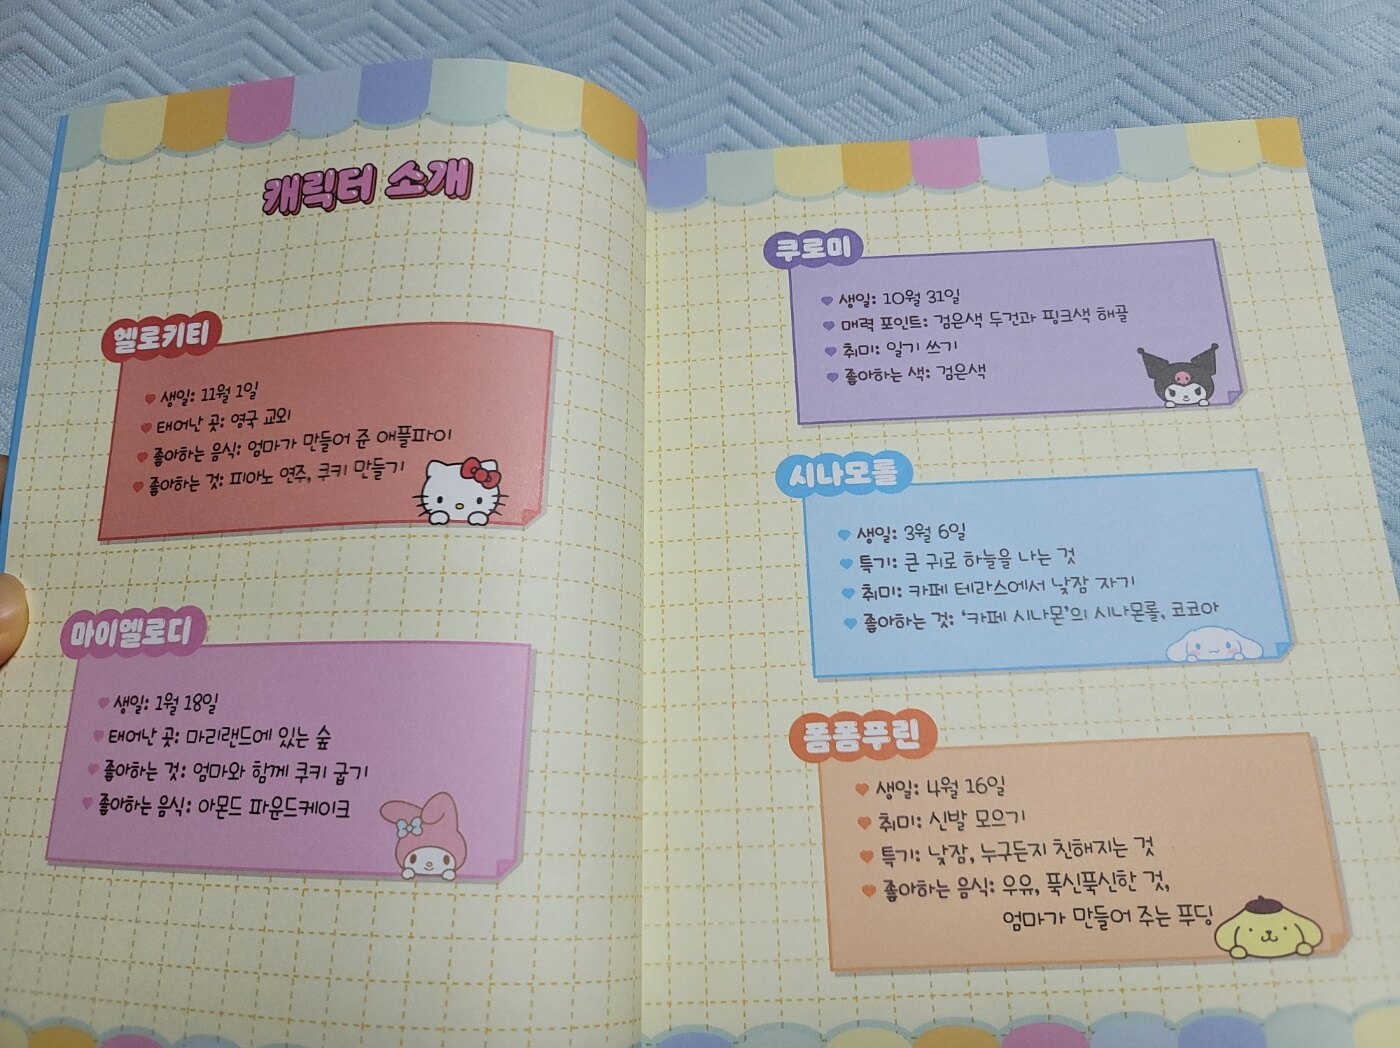 캐릭터 소개
헬로키티
생일: 11월 1일
태어난 곳: 영국 교외
좋아하는 음식: 엄마가 만들어 준 애플파이
좋아하는 것: 피아노 연주, 쿠키 만들기
마이멜로디
생일: 1월 18일
태어난 곳: 마리랜드에 있는 숲
좋아하는 것: 엄마와 함께 쿠키 굽기
좋아하는 음식: 아몬드 파운드케이크
쿠로미
생일: 10월 31일
매력 포인트: 검은색 두건과 핑크색 해골
취미: 일기 쓰기
좋아하는 색: 검은색
시나모롤
생일: 3월 6일
특기: 큰 귀로 하늘을 나는 것
취미: 카페 테라스에서 낮잠 자기
좋아하는 것: ‘카페 시나몬’의 시나몬롤, 코코아
폼폼푸린
생일: 4월 16일
취미: 신발 모으기
특기: 낮잠, 누구든지 친해지는 것
좋아하는 음식: 우유, 푹신푹신한 것,
엄마가 만들어 주는 푸딩